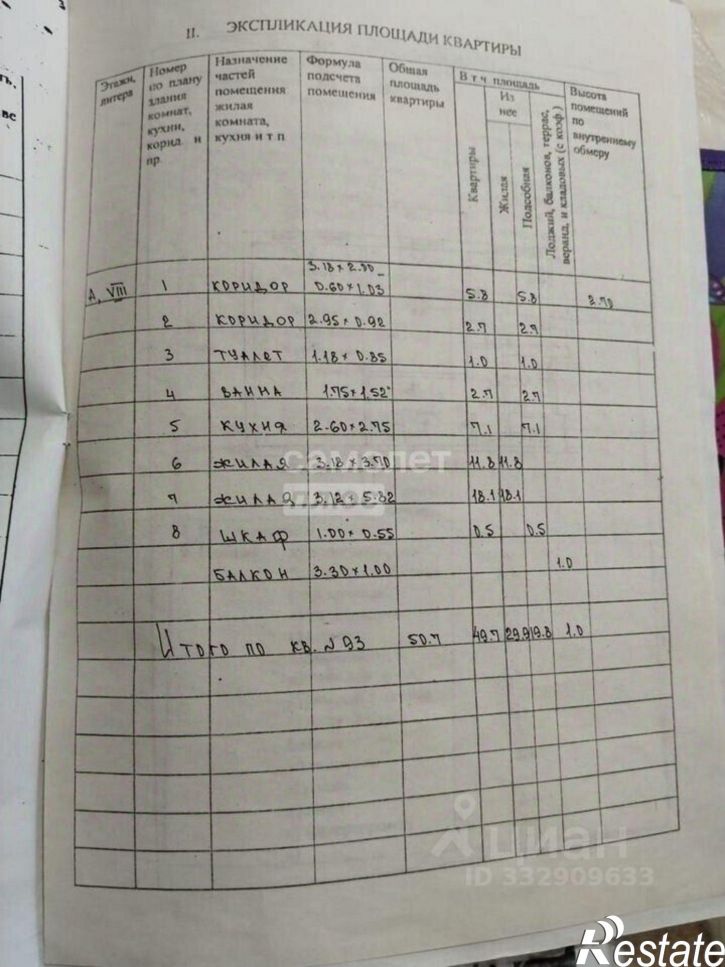 II. ЭКСПЛИКАЦИЯ ПЛОЩАДИ КВАРТИРЫ
Этажи, литера
Номер по плану здания комнат, кухни, корид. и пр.
Назначение частей помещения жилая комната, кухня и т.п.
Формула подсчета помещения
Общая площадь квартиры
В т ч площадь
Квартиры
Из нее
Жилая
Подсобная
Лоджий, балконов, террас, веранд, и кладовых (с коэф.)
Высота помещений по внутреннему обмеру
3.18 × 2.00 –
А, VIII 1 КОРИДОР 0.60×1.03 5.8 5.8 2.70
2 КОРИДОР 2.95×0.92 2.7 2.7
3 ТУАЛЕТ 1.18×0.85 1.0 1.0
4 ВАННА 1.75×1.52 2.7 2.7
5 КУХНЯ 2.60×2.75 7.1 7.1
6 ЖИЛАЯ 3.18×3.70 11.8 11.8
7 ЖИЛАЯ 3.12×5.82 18.1 18.1
8 ШКАФ 1.00×0.55 0.5 0.5
БАЛКОН 3.30×1.00 1.0
ИТОГО ПО КВ. №93 50.7 49.7 29.9 19.8 1.0
самолет
плюс
циан
ID 332909633
Restate